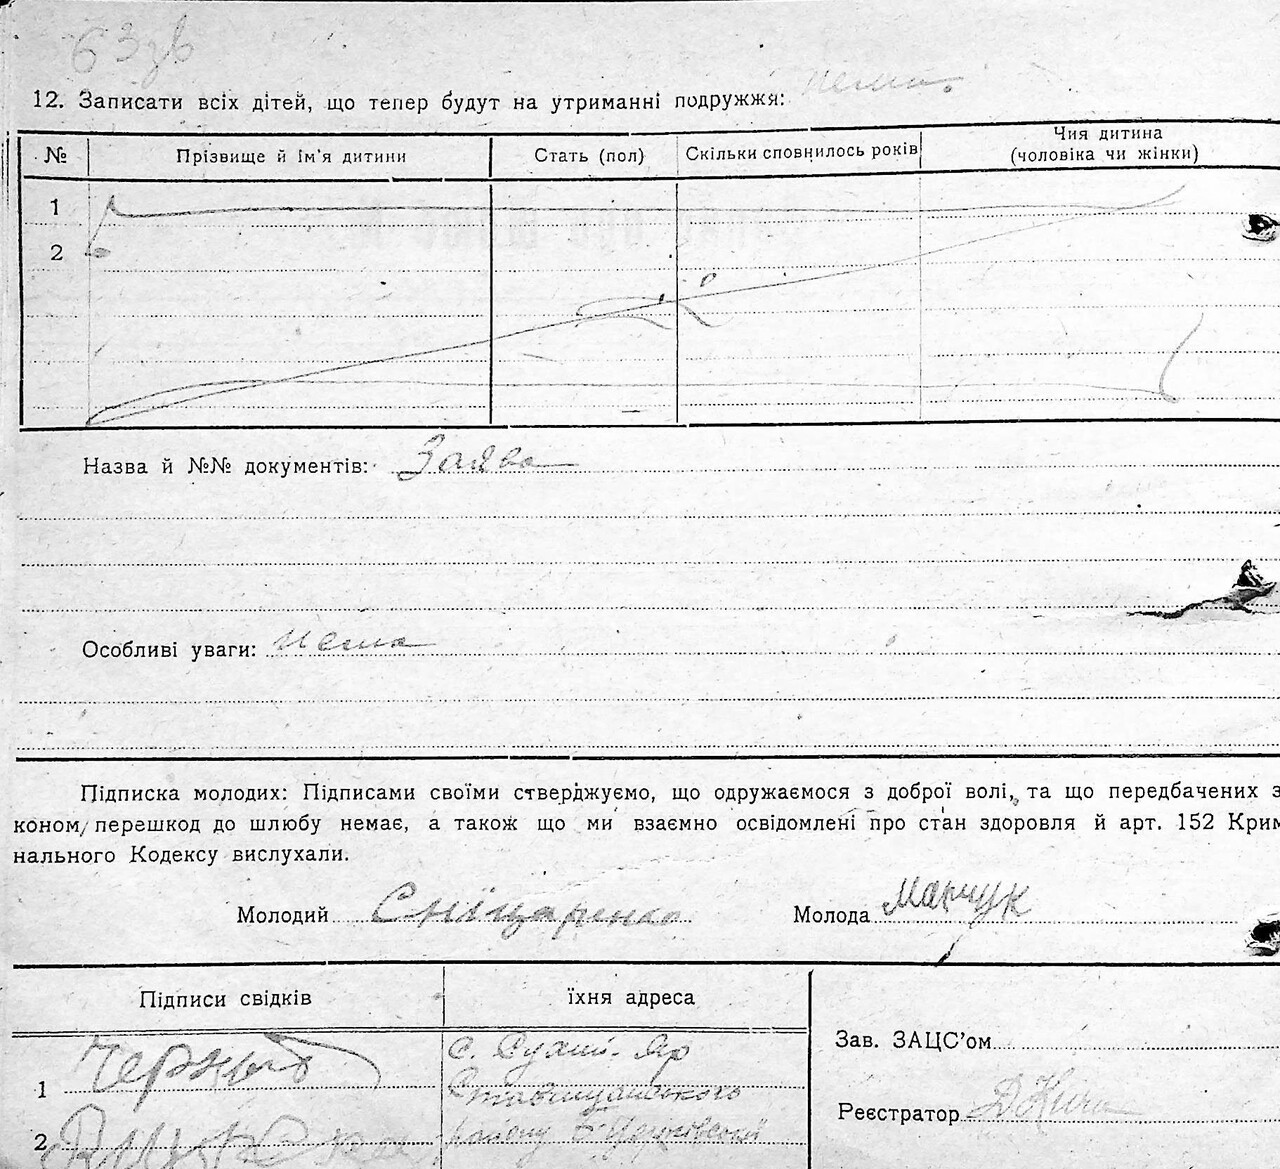 63зв
12. Записати всіх дітей, що тепер будут на утриманні подружжя: нема
№ Прізвище й ім'я дитини Стать (пол) Скільки сповнилось років Чия дитина (чоловіка чи жінки)
1
2
Назва й №№ документів: Заява
Особливі уваги: нема
Підписка молодих: Підписами своїми стверджуємо, що одружаємося з доброї волі, та що передбачених з
коном перешкод до шлюбу немає, а також що ми взаємно освідомлені про стан здоровля й арт. 152 Крим
нального Кодексу вислухали.
Молодий Сніцаренко Молода Марчук
Підписи свідків їхня адреса
Зав. ЗАЦС'ом
1 с. Сухий-Яр
Ставищанського
Реєстратор
2 району Б Церківської